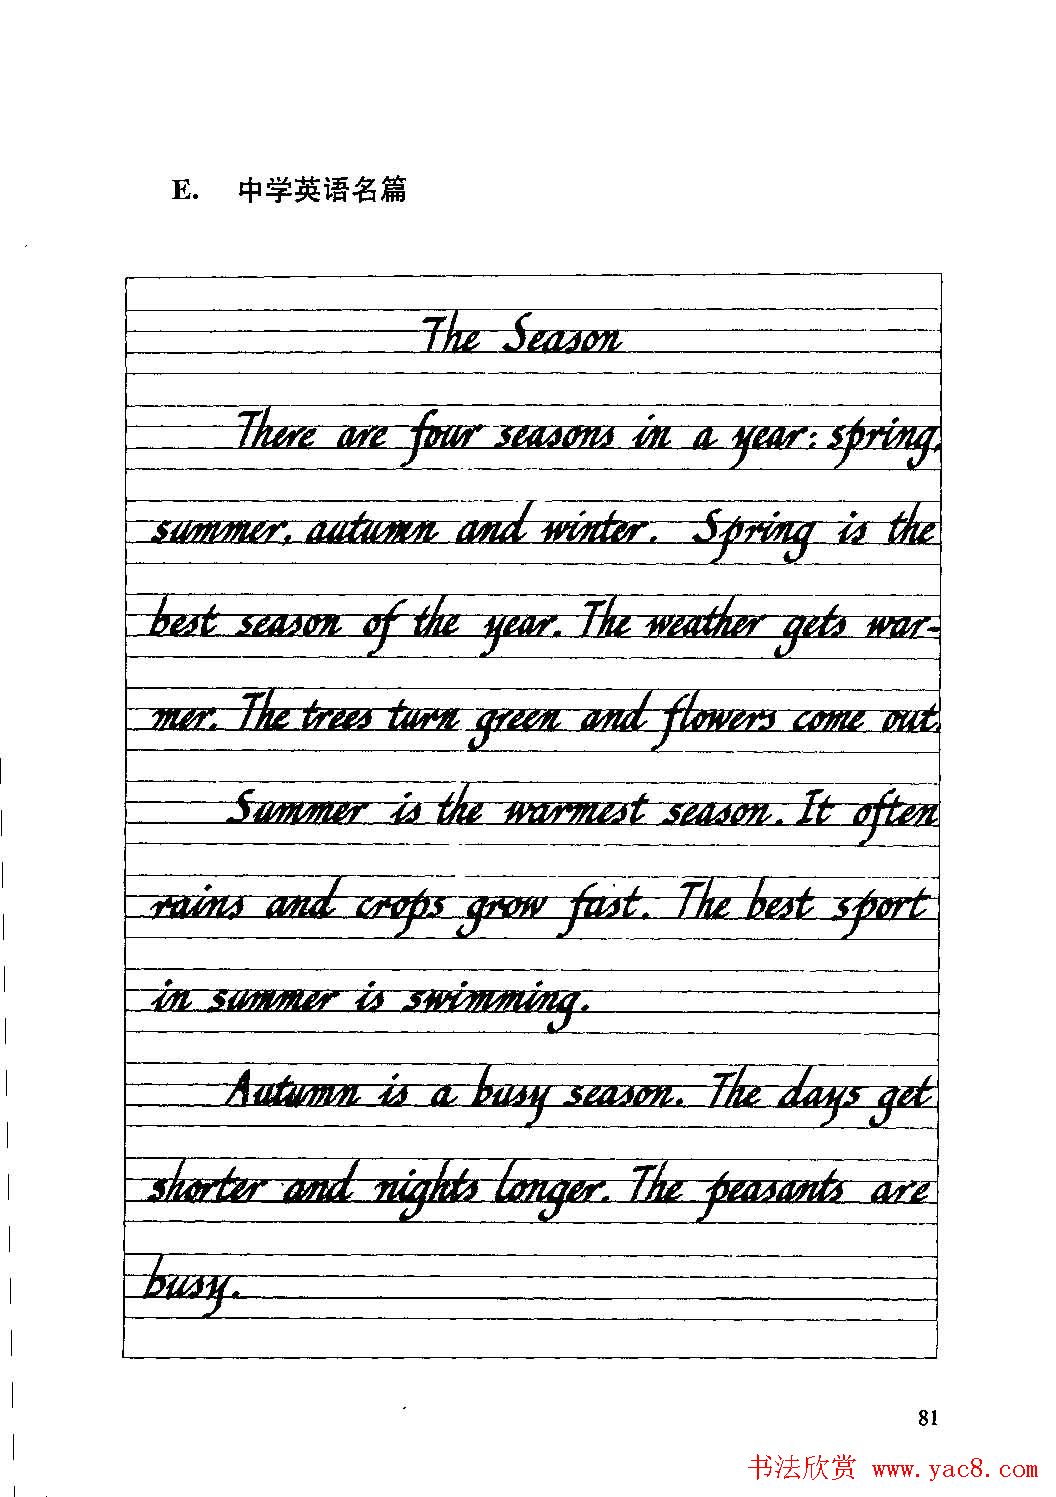 E. 中学英语名篇
The Season
There are four seasons in a year: spring,
summer, autumn and winter. Spring is the
best season of the year. The weather gets war-
mer. The trees turn green and flowers come out.
Summer is the warmest season. It often
rains and crops grow fast. The best sport
in summer is swimming.
Autumn is a busy season. The days get
shorter and nights longer. The peasants are
busy.
81
书法欣赏 www.yac8.com